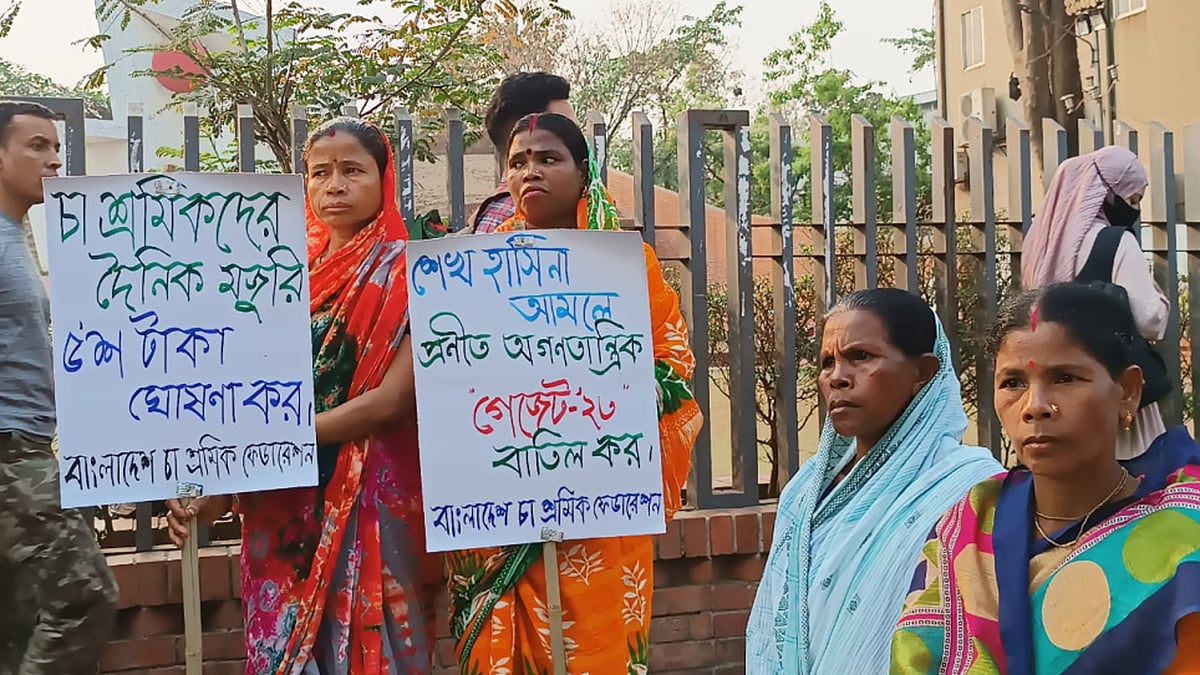 চা শ্রমিকদের
দৈনিক মজুরি
৫'শ টাকা
ঘোষণা কর।
বাংলাদেশ চা শ্রমিক ফেডারেশন
শেখ হাসিনা
আমলে
প্রনীত অগনতান্ত্রিক
"গেজেট-'২৩"
বাতিল কর।
বাংলাদেশ চা শ্রমিক ফেডারেশন